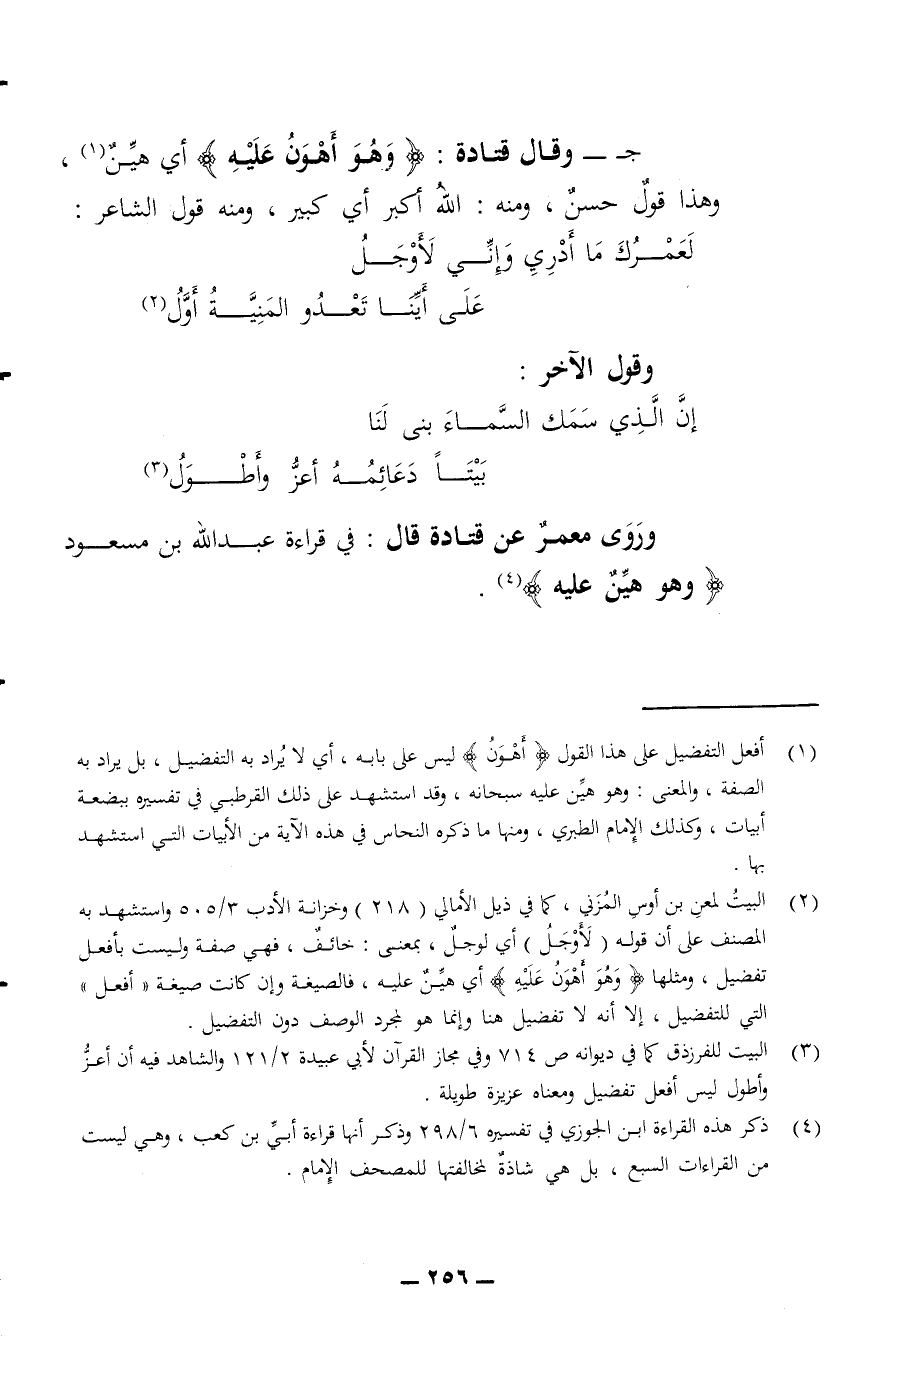 جـ ــ وقال قتادة : ﴿ وَهُوَ أَهْوَنُ عَلَيْهِ ﴾ أي هيِّنٌ(١) ،
وهذا قولٌ حسنٌ ، ومنه : اللهُ أكبر أي كبير ، ومنه قول الشاعر :
لَعَمْـــرُكَ مَا أَدْرِي وَإِنِّـــي لَأَوْجَـــلُ
عَلَـى أَيِّنَـــا تَعْـــدُو المَنِيَّـــةُ أَوَّلُ(٢)
وقول الآخر :
إنَّ الَّذِي سَمَك السَّمـــاءَ بنى لَنَا
بَيْتَـــاً دَعَائِمُـــهُ أعزُّ وأَطْـــوَلُ(٣)
ورَوَى معمرٌ عن قتادة قال : في قراءة عبـدالله بن مسعـــود
﴿ وهو هيِّنٌ عليه ﴾(٤) .
(١) أفعل التفضيل على هذا القول ﴿ أَهْوَنُ ﴾ ليس على بابه ، أي لا يُراد به التفضيـل ، بل يراد به
الصفة ، والمعنى : وهو هيِّن عليه سبحانه ، وقد استشهـد على ذلك القرطبـي في تفسيره ببضعـة
أبيات ، وكذلك الإمام الطبري ، ومنها ما ذكره النحاس في هذه الآية من الأبيات التـي استشهـد
بها .
(٢) البيتُ لمعن بن أوس المُزَني ، كما في ذيل الأمالي ( ٢١٨ ) وخزانة الأدب ٥٠٥/٣ واستشهـد به
المصنف على أن قولـه ( لَأَوْجَلُ ) أي لوجلٌ ، بمعنـى : خائـفٌ ، فهـي صفة وليست بأفعـل
تفضيل ، ومثلها ﴿ وَهُوَ أَهْوَنُ عَلَيْهِ ﴾ أي هيِّـنٌ عليـه ، فالصيغـة وإن كانت صيغـة « أفعـل »
التي للتفضيل ، إلا أنه لا تفضيل هنا وإنما هو لمجرد الوصف دون التفضيل .
(٣) البيت للفرزدق كما في ديوانه ص ٧١٤ وفي مجاز القرآن لأبي عبيدة ١٢١/٢ والشاهد فيه أن أعزُّ
وأطول ليس أفعل تفضيل ومعناه عزيزة طويلة .
(٤) ذكر هذه القراءة ابـن الجوزي في تفسيره ٢٩٨/٦ وذكـر أنها قراءة أبـيِّ بن كعب ، وهـي ليست
من القراءات السبع ، بل هي شاذةٌ لمخالفتها للمصحف الإمام .
ــ ٢٥٦ ــ